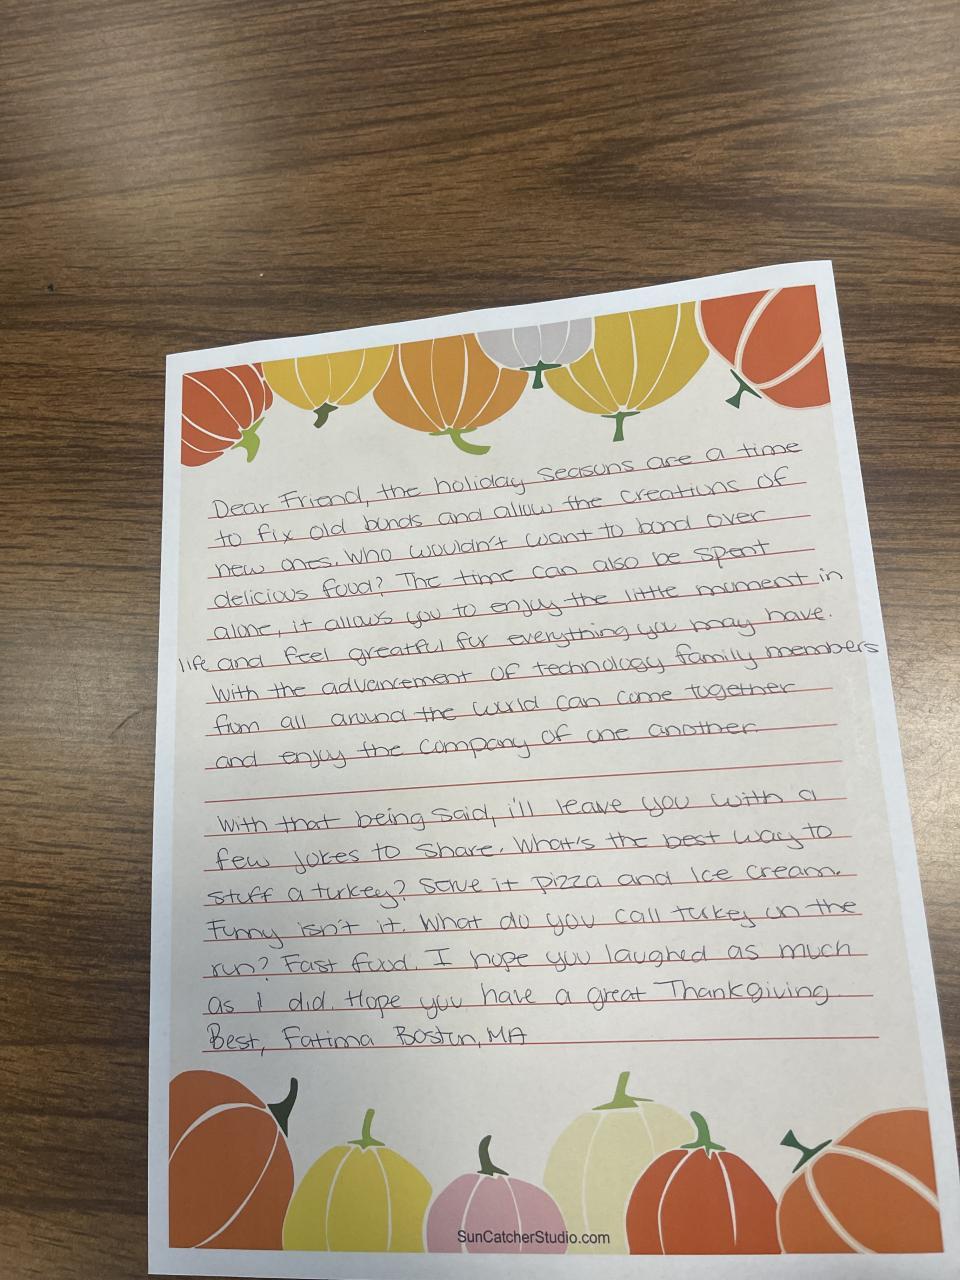 Dear Friend, the holiday seasons are a time
to fix old bonds and allow the creations of
new ones. Who wouldn't want to bond over
delicious food? The time can also be spent
alone, it allows you to enjoy the little moment in
life and feel greatful for everything you may have.
With the advancement of technology family members
from all around the world can come together
and enjoy the company of one another.
With that being said, i'll leave you with a
few jokes to share. What's the best way to
stuff a turkey? Serve it pizza and Ice cream.
Funny isn't it. What do you call turkey on the
run? Fast food. I hope you laughed as much
as I did. Hope you have a great Thankgiving.
Best, Fatima Boston, MA
SunCatcherStudio.com